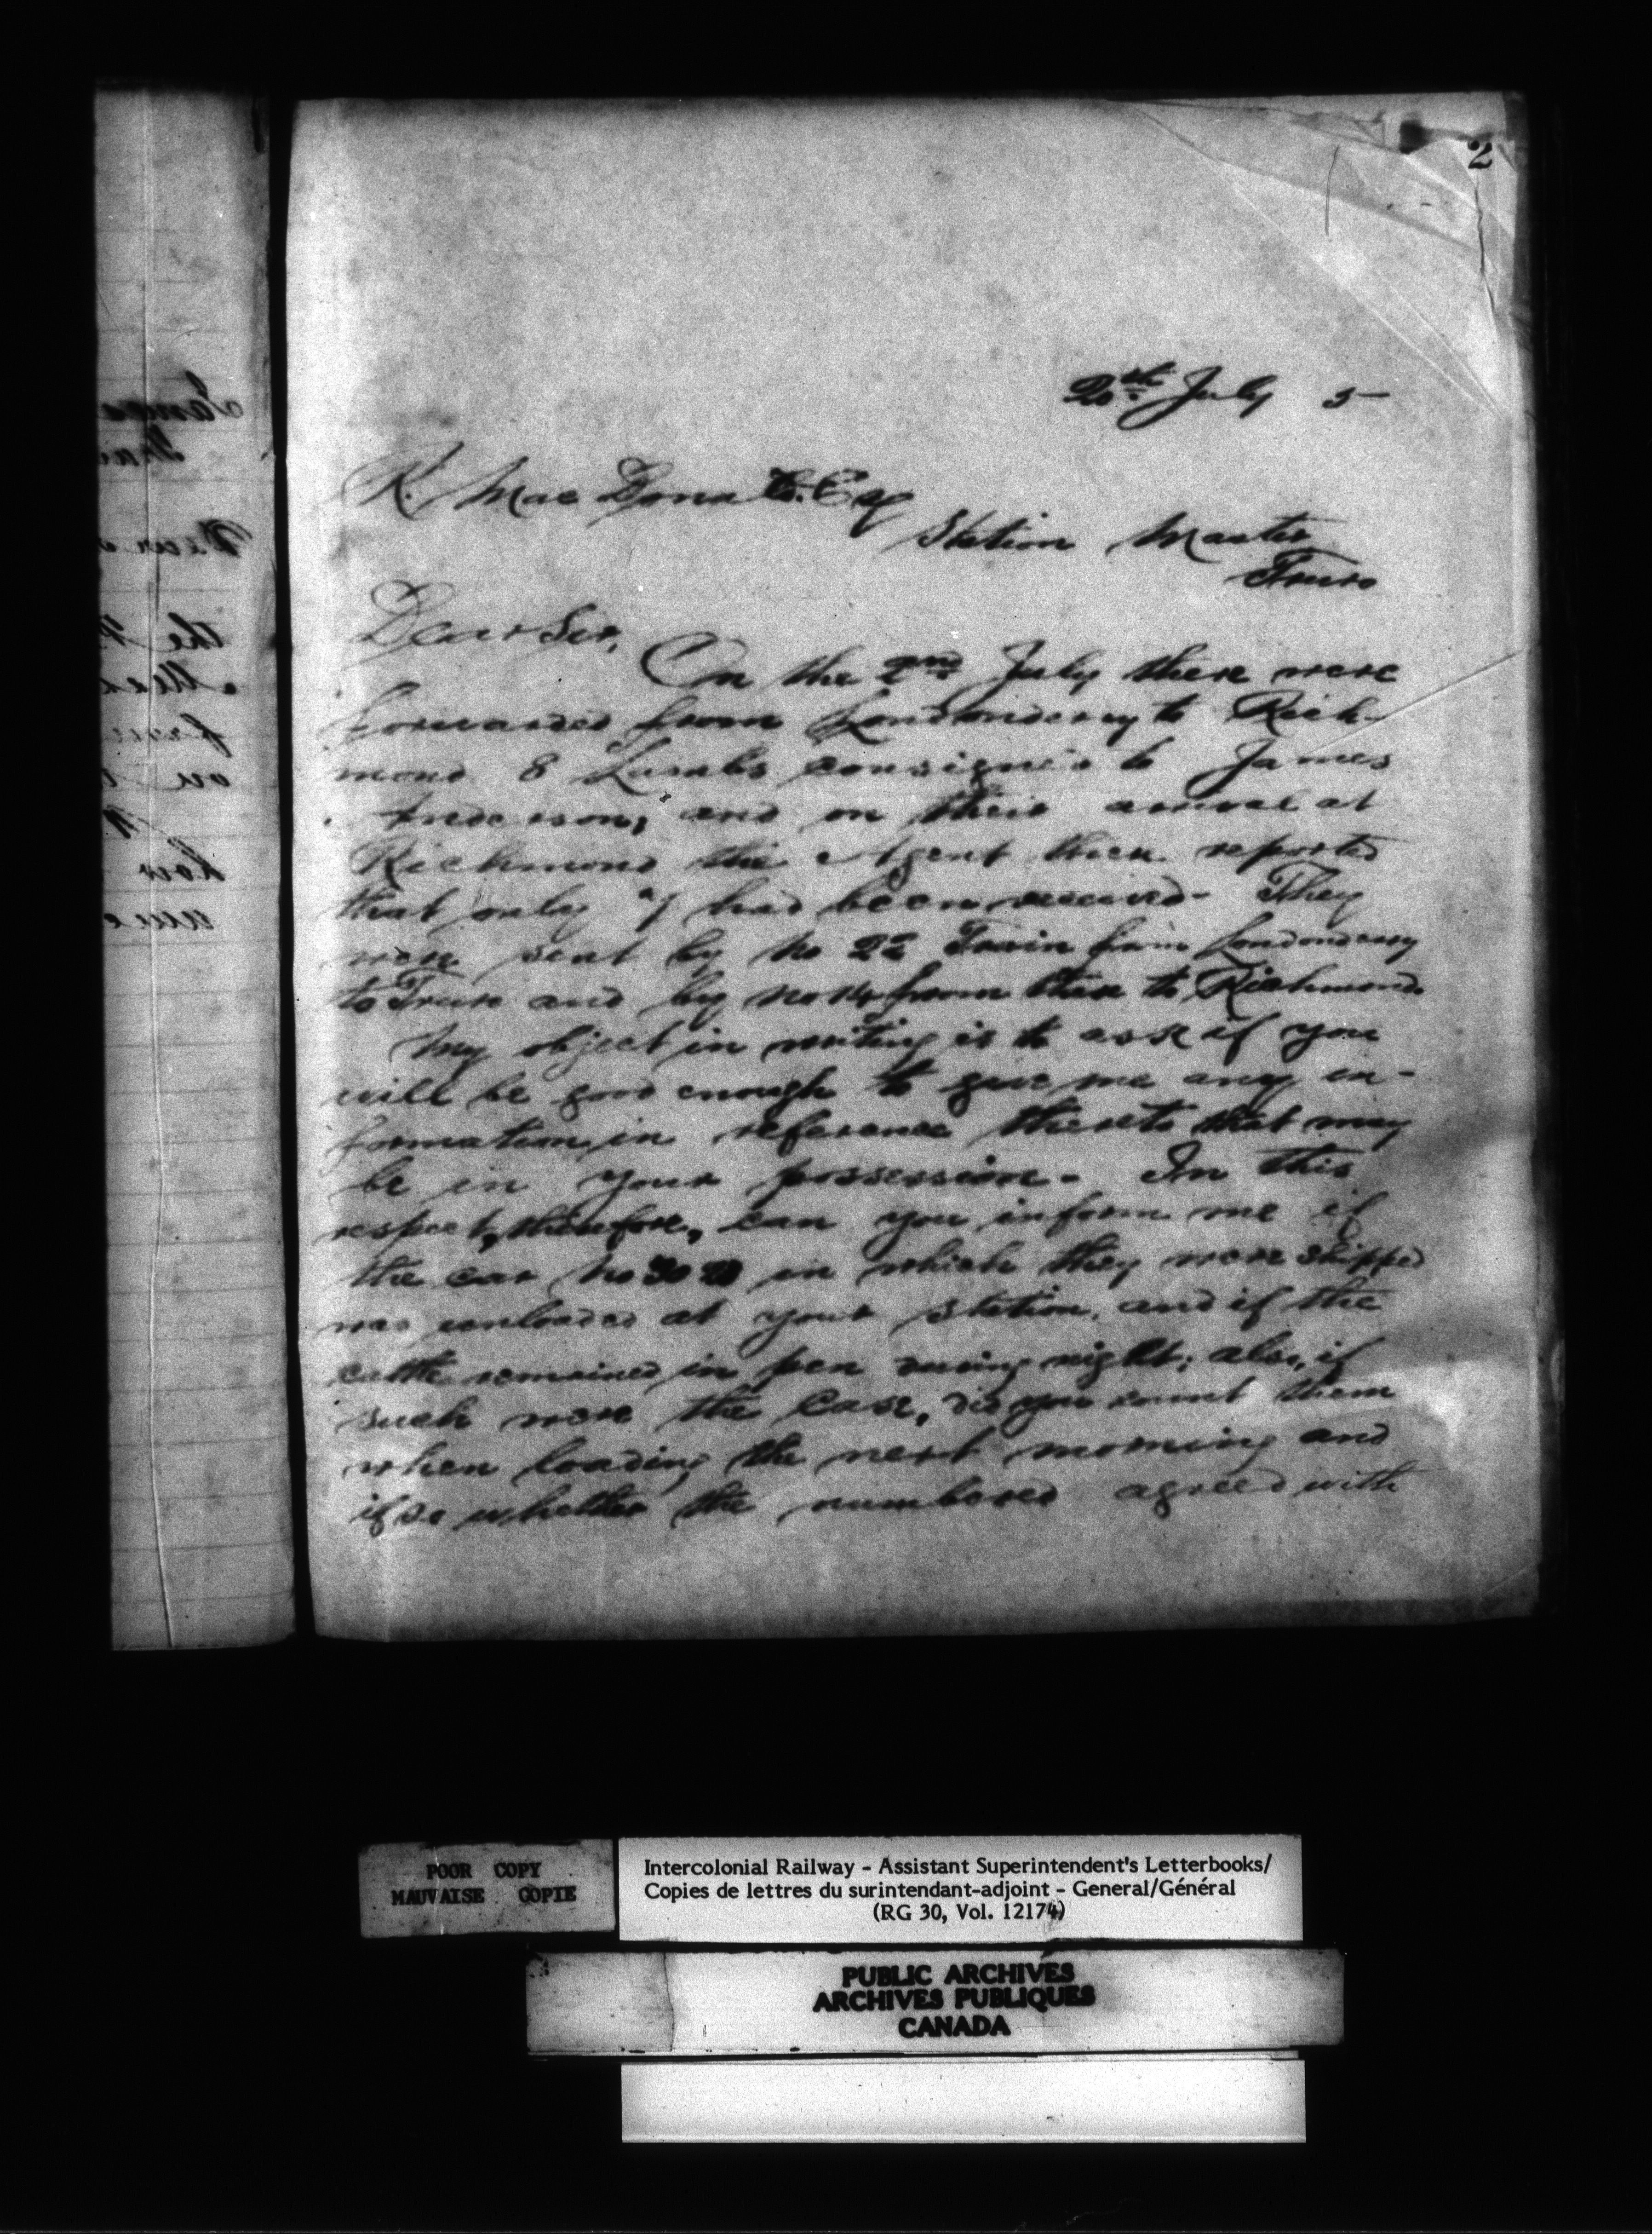 2
20th July 5
R. MacDonald Esq
Station Master
Truro
Dear Sir,
On the 2nd July there were
forwarded from Londonderry to Rich-
mond 8 Lambs consigned to James
Anderson, and on their arrival at
Richmond the Agent there reported
that only 7 had been received - They
were sent by No 22 Train from Londonderry
to Truro and by No 14 from there to Richmond.
My object in writing is to ask if you
will be good enough to give me any in-
formation in reference thereto that may
be in your possession - In this
respect, therefore, can you inform me if
the car No in which they were shipped
was unloaded at your Station, and if the
cattle remained in pen during night; also, if
such were the case, did you count them
when loading the next morning and
if so whether the numbered agreed with
POOR COPY
MAUVAISE COPIE
Intercolonial Railway - Assistant Superintendent's Letterbooks/
Copies de lettres du surintendant-adjoint - General/Général
(RG 30, Vol. 12174)
PUBLIC ARCHIVES
ARCHIVES PUBLIQUES
CANADA